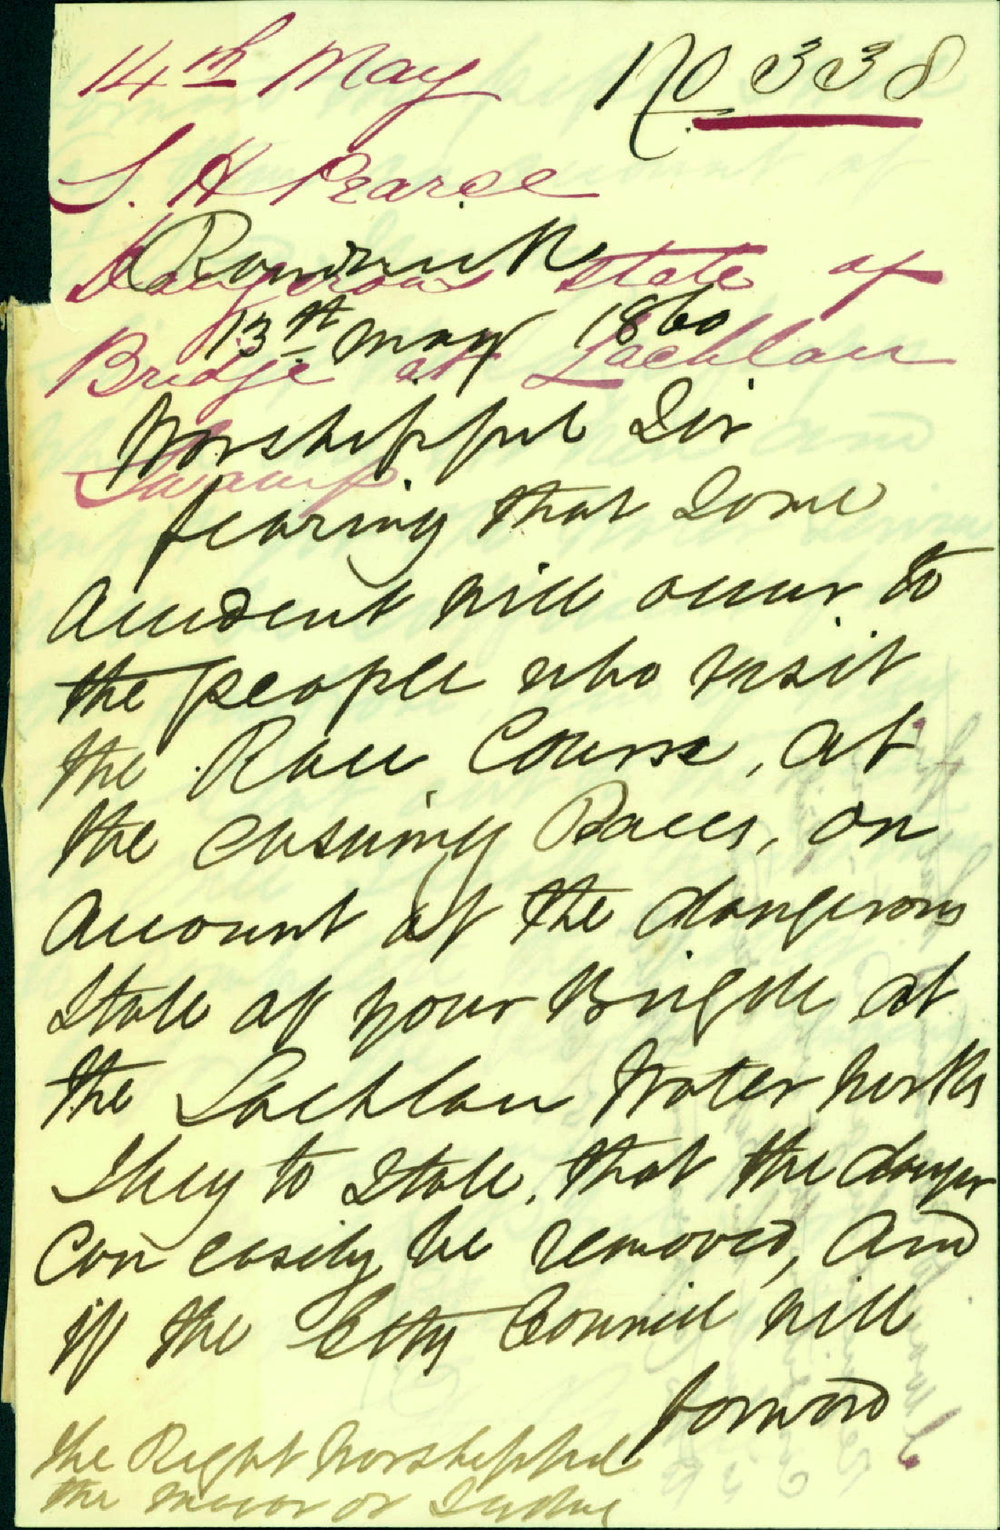 14th May
No 338
S. H Pearce
Dangerous state of
Bridge at Lachlan
Swamp
Randwick
13th May 1860
Worshipful Sir
fearing that Some
Accident will occur to
the people who visit
the Race Course, at
the ensuing Races, on
Account of the dangerous
State of your Bridge at
the Lachlan Water works
I beg to State, that the danger
Can easily be removed, And
if the City Council will
forward
the Right Worshipful
the Mayor of Sydney